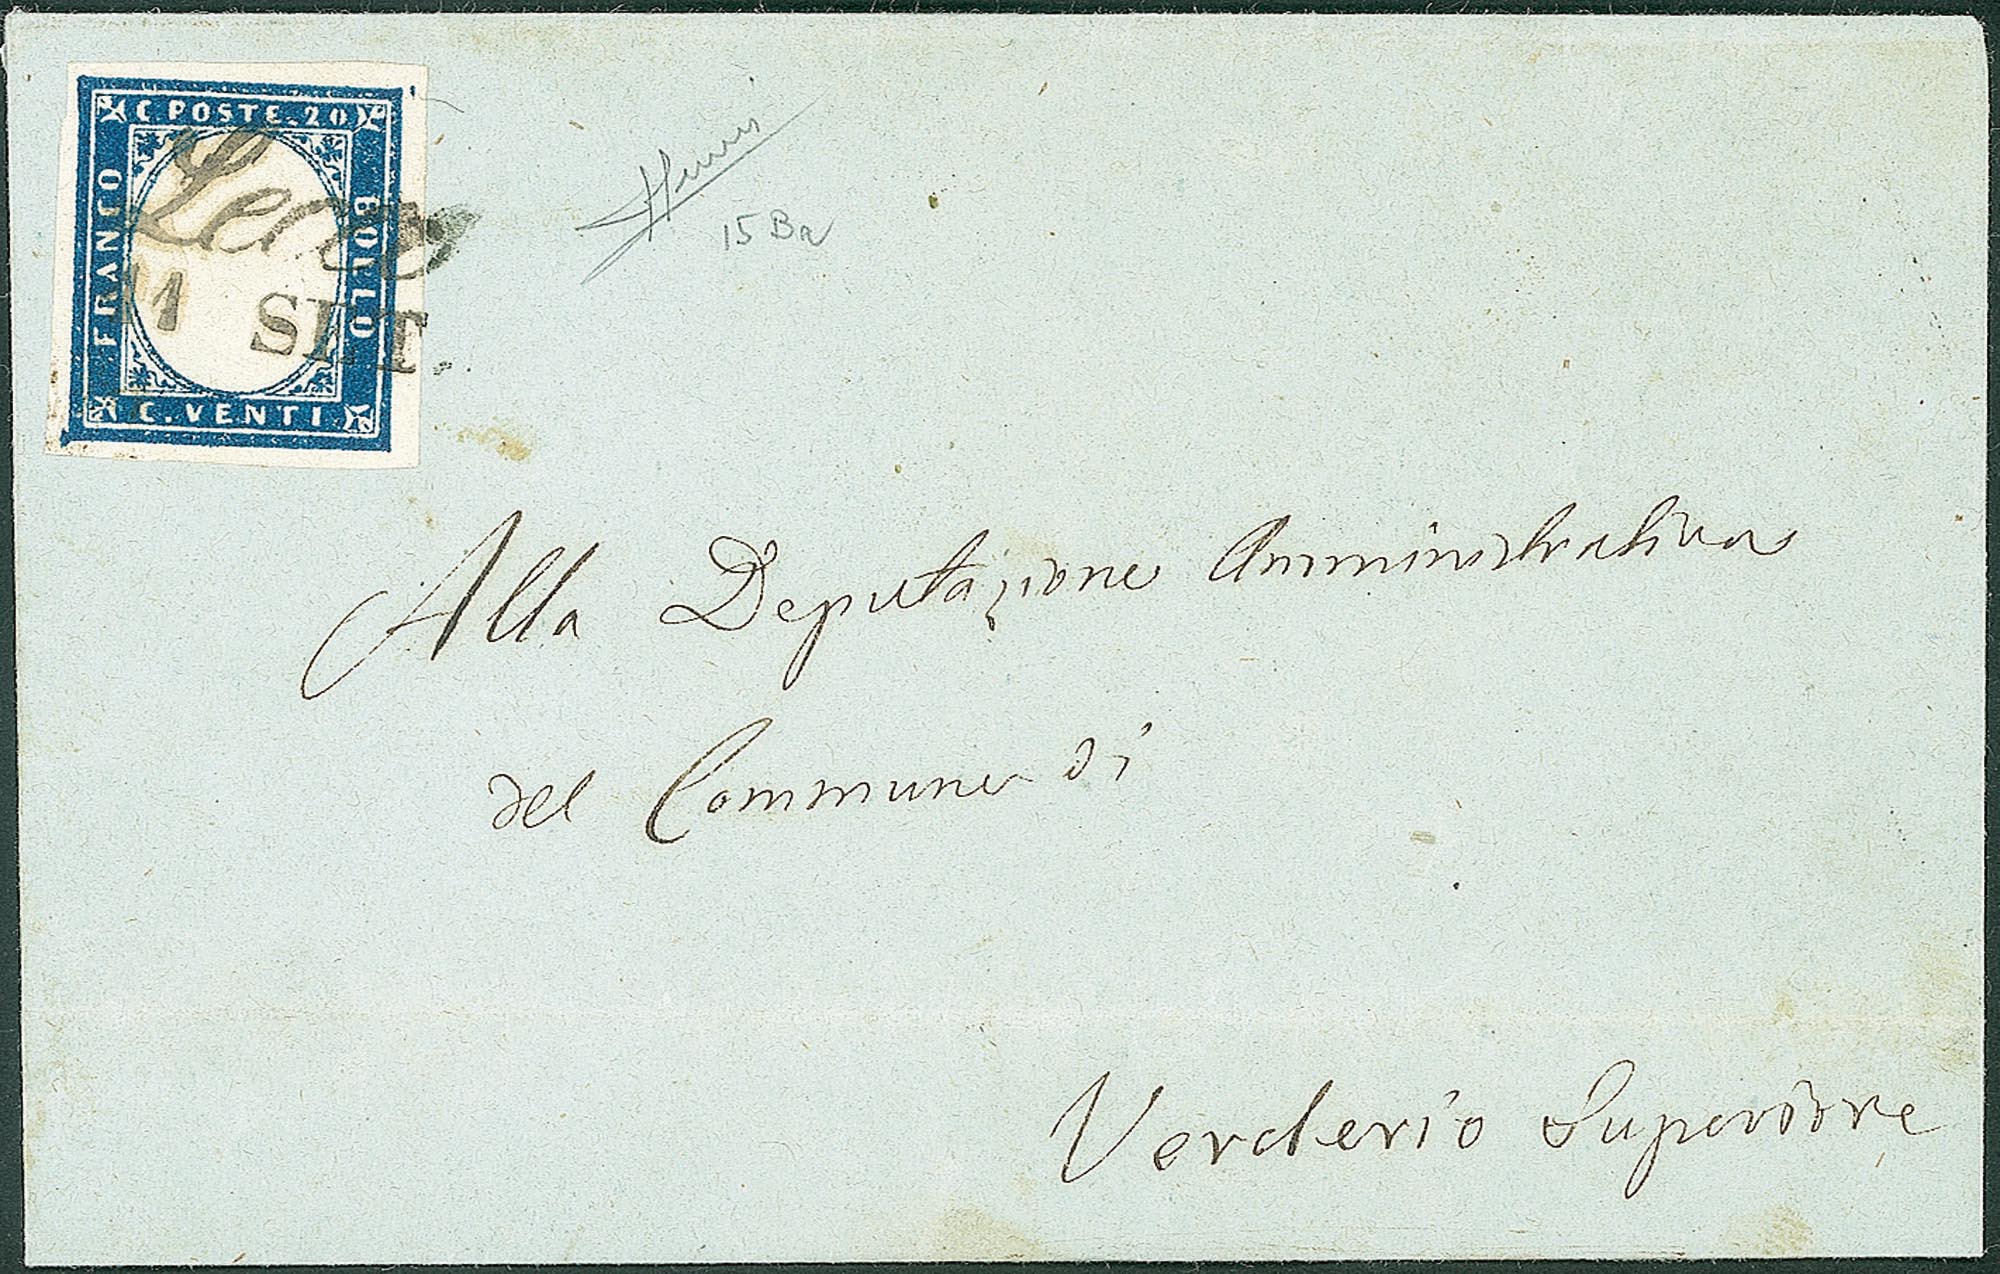 C POSTE. 20
FRANCO
BOLLO
C. VENTI
11 SET.
15 Ba
Alla Deputazione Amministrativa
del Commune di
Verderio Superiore